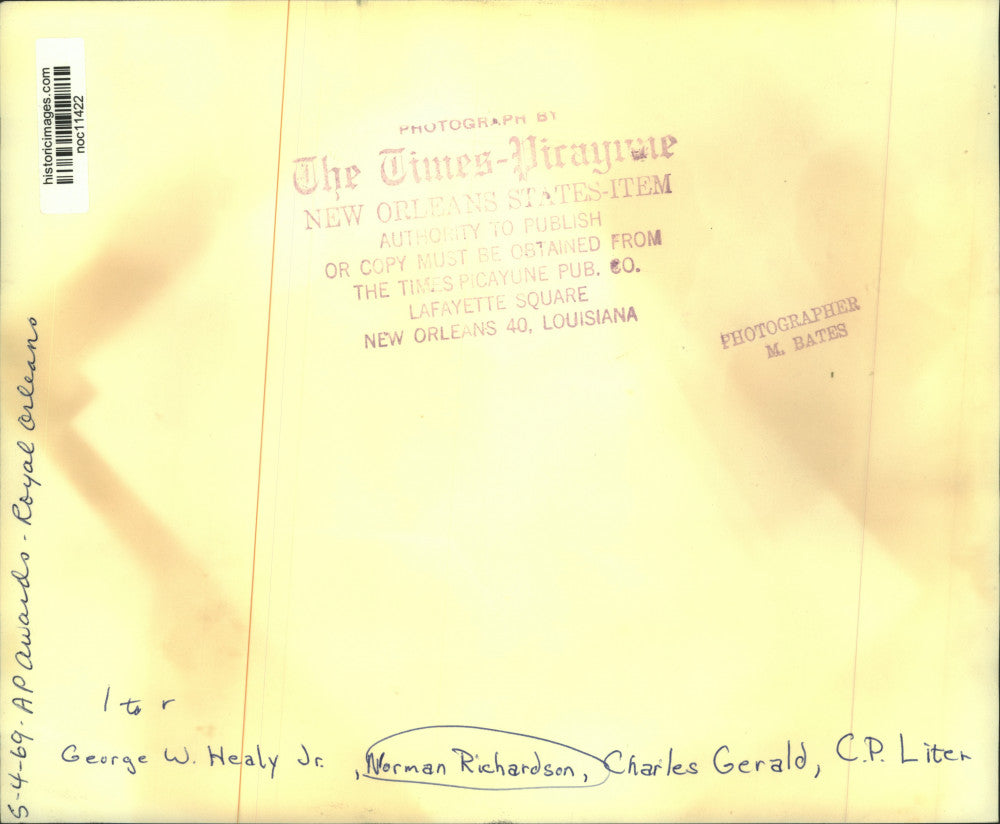 historicimages.com
noc11422
PHOTOGRAPH BY
The Times-Picayune
NEW ORLEANS STATES-ITEM
AUTHORITY TO PUBLISH
OR COPY MUST BE OBTAINED FROM
THE TIMES PICAYUNE PUB. CO.
LAFAYETTE SQUARE
NEW ORLEANS 40, LOUISIANA
PHOTOGRAPHER
M. BATES
5-4-69-AP Awards-Royal Orleans
l to r
George W. Healy Jr. , Norman Richardson, Charles Gerald, C.P. Liter